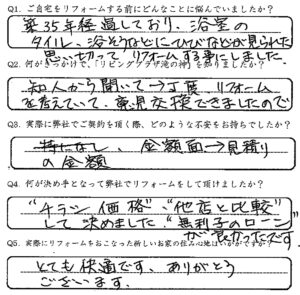 Q1. ご自宅をリフォームする前にどんなことに悩んでいましたか?
築35年経過しており、浴室の
タイル、浴そうなどにひびなどが見られた
思い切ってリフォームする事にしました。
Q2. 何がきっかけで、「リビングプラザ池の坪」を知りましたか?
知人から聞いて→丁度、リフォーム
を考えていて、意見交換できましたので
Q3. 実際に弊社でご契約を頂く際、どのような不安をお持ちでしたか?
特になし、金額面→見積り
の金額
Q4. 何が決め手となって弊社でリフォームをして頂けましたか?
"チラシ価格"、"他店と比較"
して決めました。"無利子のローン"
が良かったです
Q5. 実際にリフォームをおこなった新しいお家の住み心地はいかがですか?
とても快適です、ありがとう
ございます。